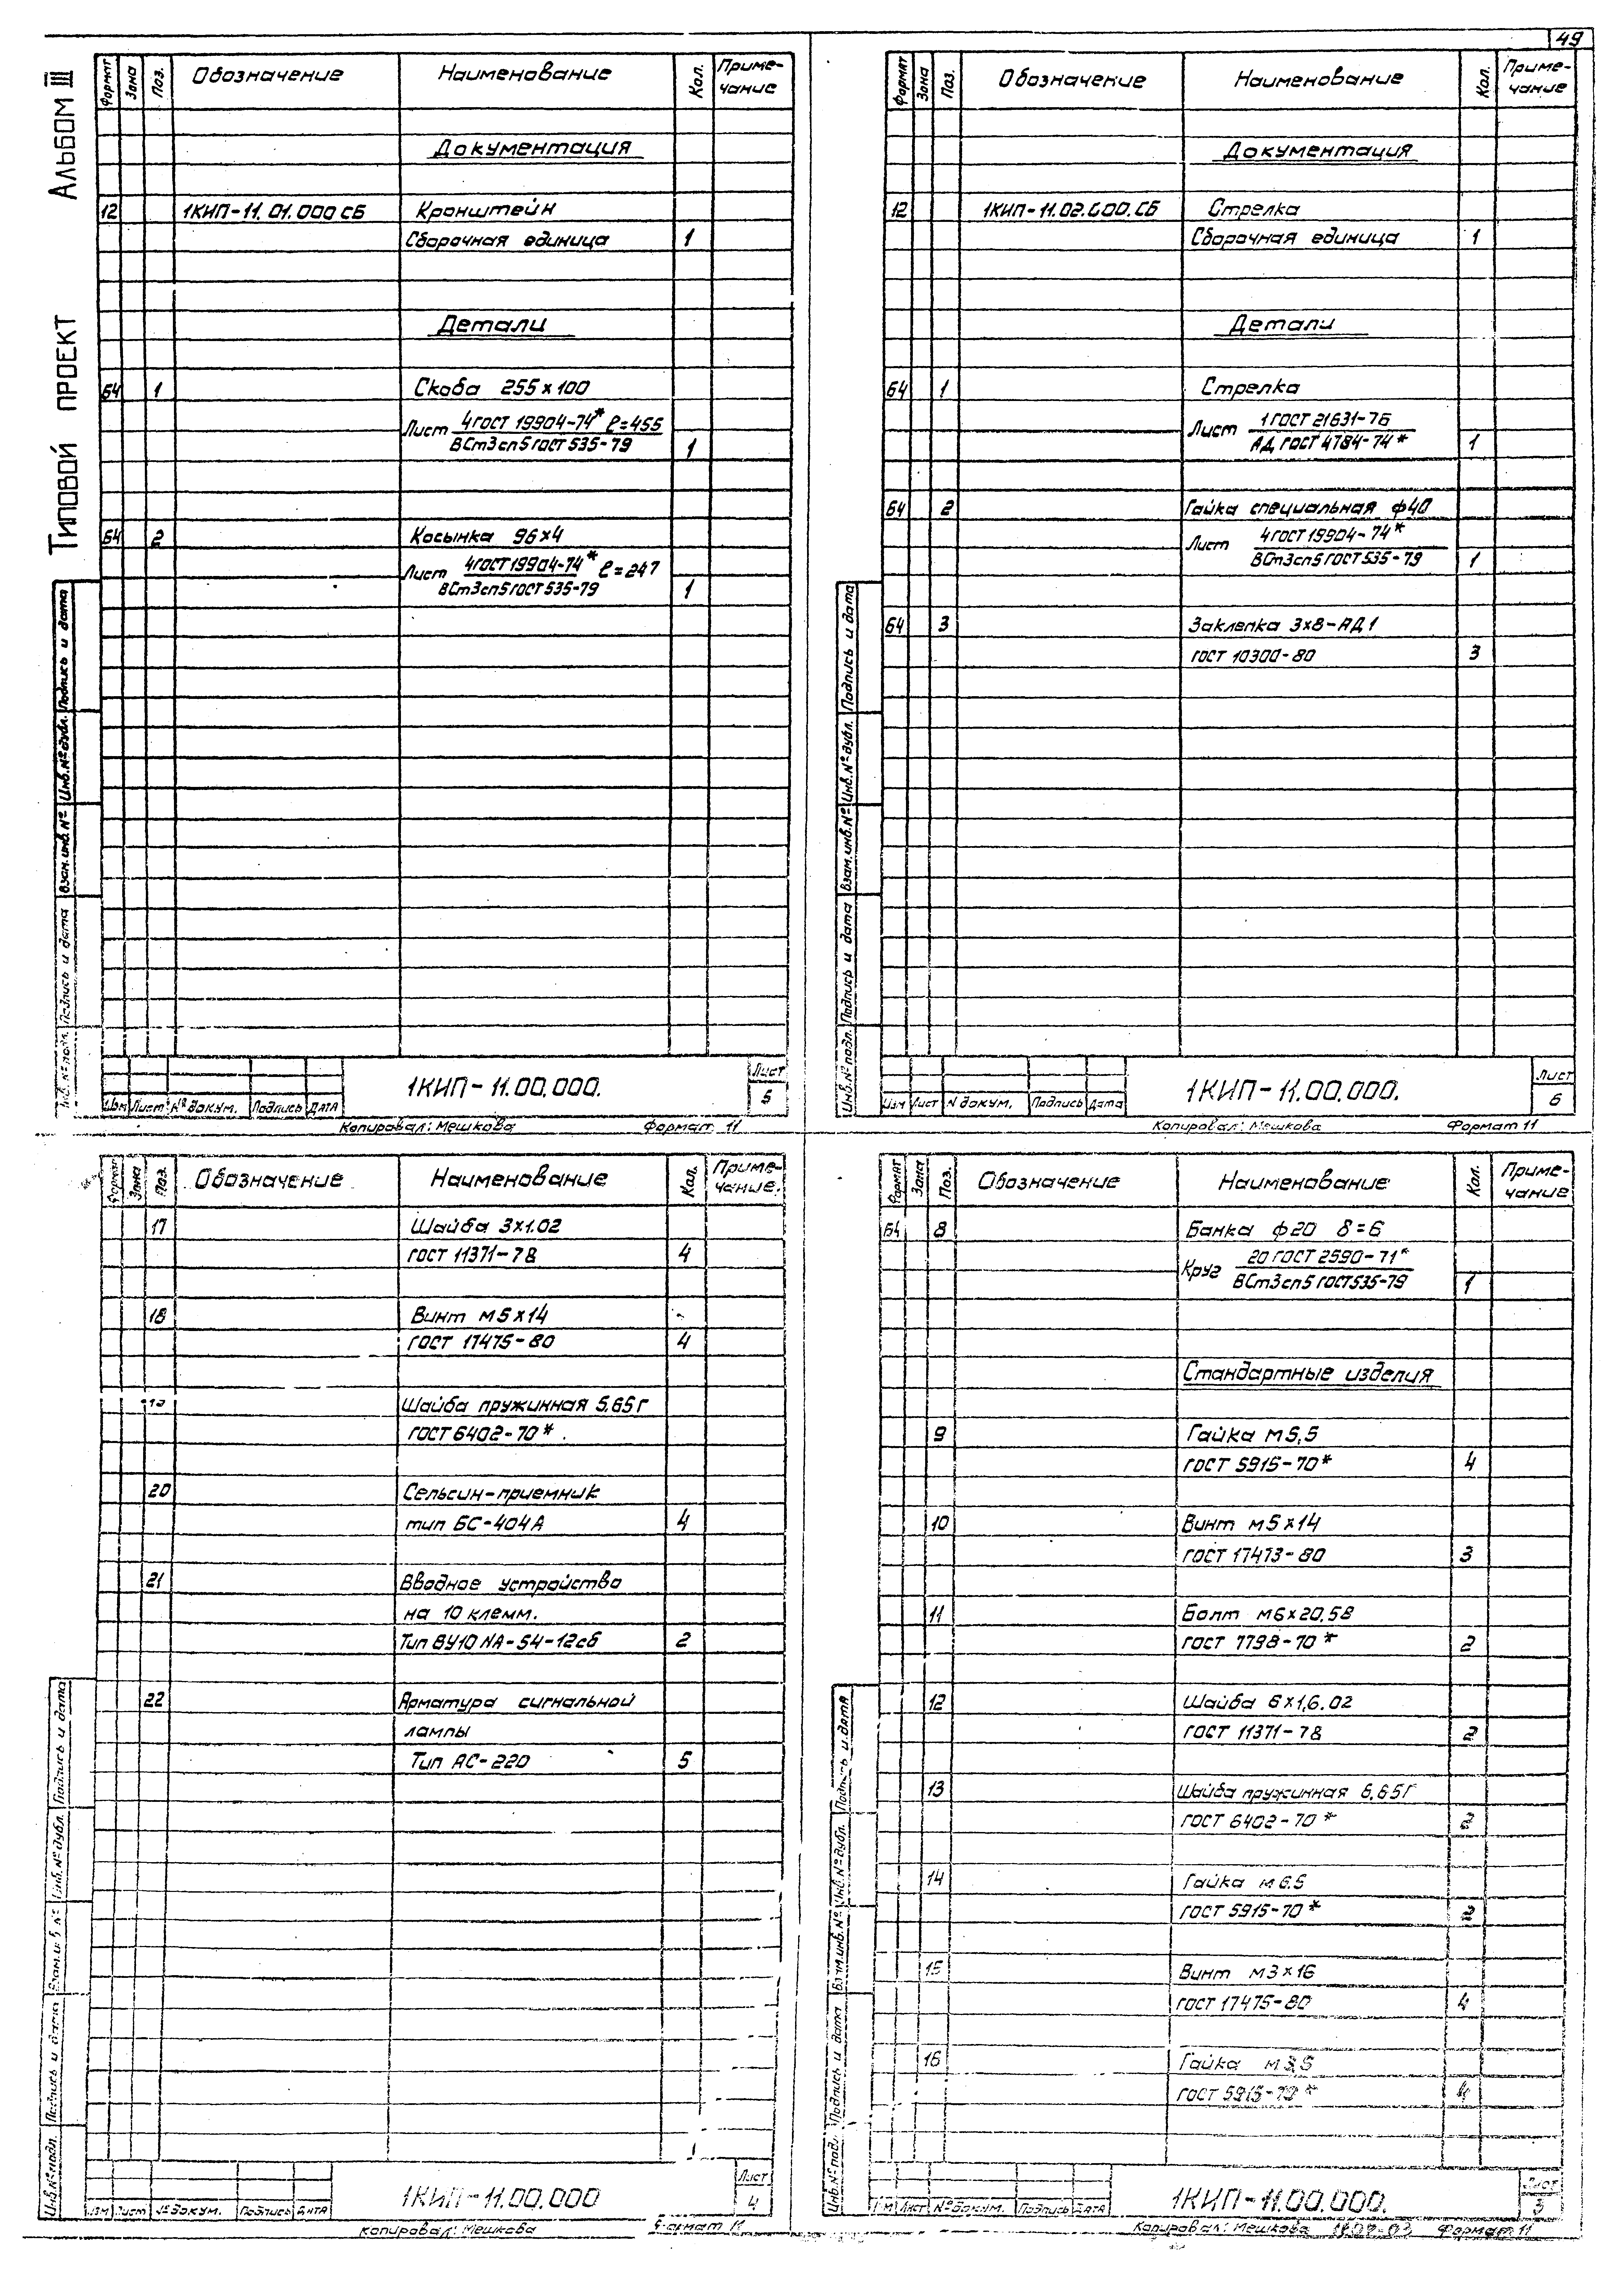 49
Альбом III
Типовой проект
Формат Зона Поз. Обозначение Наименование Кол. Приме-
чание
Документация
12 1КИП-11.01.000 СБ Кронштейн
Сборочная единица 1
Детали
Б4 1 Скоба 255×100
Лист 4 ГОСТ 19904-74* ℓ=455
ВСт3сп5 ГОСТ 535-79 1
Б4 2 Косынка 96×4
Лист 4 ГОСТ 19904-74* ℓ=247
ВСт3сп5 ГОСТ 535-79 1
Подпись и дата
Инв.№ дубл.
Взам.инв.№
Подпись и дата
Инв.№ подл.
Изм Лист № докум. Подпись Дата
1КИП-11.00.000.
Лист
5
Копировал: Мешкова Формат 11
Формат Зона Поз. Обозначение Наименование Кол. Приме-
чание
Документация
12 1КИП-11.02.000.СБ Стрелка
Сборочная единица 1
Детали
Б4 1 Стрелка
Лист 1 ГОСТ 21631-76
АД ГОСТ 4784-74* 1
Б4 2 Гайка специальная ф40
Лист 4 ГОСТ 19904-74*
ВСт3сп5 ГОСТ 535-79 1
Б4 3 Заклепка 3×8-АД1
ГОСТ 10300-80 3
Подпись и дата
Инв.№ дубл.
Взам.инв.№
Подпись и дата
Инв.№ подл.
Изм Лист N докум. Подпись Дата
1КИП-11.00.000.
Лист
6
Копировал: Мешкова Формат 11
Формат Зона Поз. Обозначение Наименование Кол. Приме-
чание.
17 Шайба 3×1.02
ГОСТ 11371-78 4
18 Винт М5×14
ГОСТ 17475-80 4
19 Шайба пружинная 5,65Г
ГОСТ 6402-70*.
20 Сельсин-приемник
тип БС-404А 4
21 Вводное устройство
на 10 клемм.
Тип ВУ10 NА-54-12сб 2
22 Арматура сигнальной
лампы
Тип АС-220 5
Подпись и дата
Инв.№ дубл.
Взам.инв.№
Подпись и дата
Инв.№ подл.
Изм Лист № докум. Подпись Дата
1КИП-11.00.000
Лист
4
Копировал: Мешкова Формат 11
Формат Зона Поз. Обозначение Наименование Кол. Приме-
чание
Б4 8 Банка ф20 8=6
Круг 20 ГОСТ 2590-71*
ВСт3сп5 ГОСТ 535-79 1
Стандартные изделия
9 Гайка М5,5
ГОСТ 5915-70* 4
10 Винт М5×14
ГОСТ 17473-80 3
11 Болт М6×20,58
ГОСТ 7798-70* 2
12 Шайба 6×1,6.02
ГОСТ 11371-78 2
13 Шайба пружинная 6,65Г
ГОСТ 6402-70* 2
14 Гайка М6.5
ГОСТ 5915-70* 2
15 Винт М3×16
ГОСТ 17475-80 4
16 Гайка М3,5
ГОСТ 5915-70* 4
Подпись и дата
Инв.№ дубл.
Взам.инв.№
Подпись и дата
Инв.№ подл.
Изм Лист № докум. Подпись Дата
1КИП-11.00.000.
Лист
3
Копировал: Мешкова Формат 11